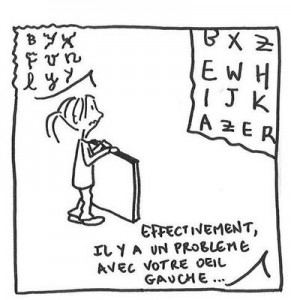 B Y X
F U N
l y Y
B X Z
E W H
I J K
A Z E R
EFFECTIVEMENT,
IL Y A UN PROBLEME
AVEC VOTRE OEIL
GAUCHE...